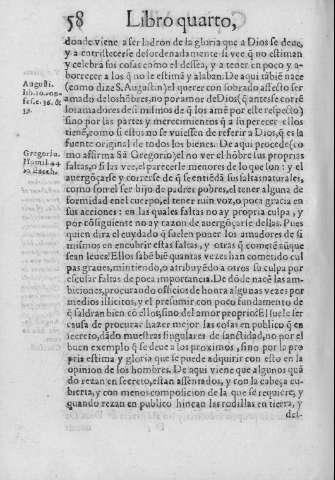 58 Libro quarto,
donde viene a ser ladron de la gloria que a Dios se deue,
y a entristecerse desordenadamente si vee q̃ no estiman
y celebrã sus cosas como el dessea, y a tener en poco y a-
borrecer a los q̃ no le estimã y alaban. De aqui tãbiẽ nace
Augusti.
lib.10.con-
fes.c.36.&
37.
(como dize S. Augustin) el querer con sobrado afecto ser
amado de los hõbres, no por amor de Dios (q̃ antes se corrẽ
los amadores de si mismos de q̃ los amẽ por este respecto)
sino por las partes y merecimientos q̃ a parescer de ellos
tiene, como si estos no se vuiessen de referir a Dios, q̃ es la
fuente original de todos los bienes. De aqui procede (co
Gregorio.
Homil.4.s
ezech.
mo affirma Sã Gregorio) el no ver el hõbre sus propias
faltas, o si las vee, el parecerle menores de lo que son: y el
auergõçarse y correrse de q̃ se entiẽdã sus faltas naturales,
como son el ser hijo de padres pobres, el tener alguna de
formidad en el cuerpo, el tener ruin voz, o poca gracia en
sus acciones: en las quales faltas no ay propria culpa, y
por cõsiguiente no ay razon de auergõçarse dellas. Pues
quien dira el cuydado q̃ suelen poner los amadores de si
mismos en encubrir estas faltas, y otras q̃ cometẽ aũque
sean leues? Ellos sabẽ biẽ quantas vezes han cometido cul
pas graues, mintiendo, o atribuyẽdo a otros su culpa por
escusar faltas de poca importancia. De dõde nacẽ las am-
biciones, procurando officios de honra algunas vezes por
medios illicitos, y el presumir con poco fundamento de
q̃ saldran bien cõ ellos, sino del amor proprio? El suele ser
causa de procurar hazer mejor las cosas en publico q̃ en
secreto, dãdo muestras singulares de sanctidad, no por el
buen exemplo q̃ se deue a los proximos, sino por la pro
pria estima y gloria que se puede adquirir con esto en la
opinion de los hombres. De aqui viene que algunos quã
do rezan en secreto, estan assentados, y con la cabeça cu-
bierta, y con menos composicion de la que se requiere, y
quando rezan en publico hincan las rodillas en tierra, y
des-